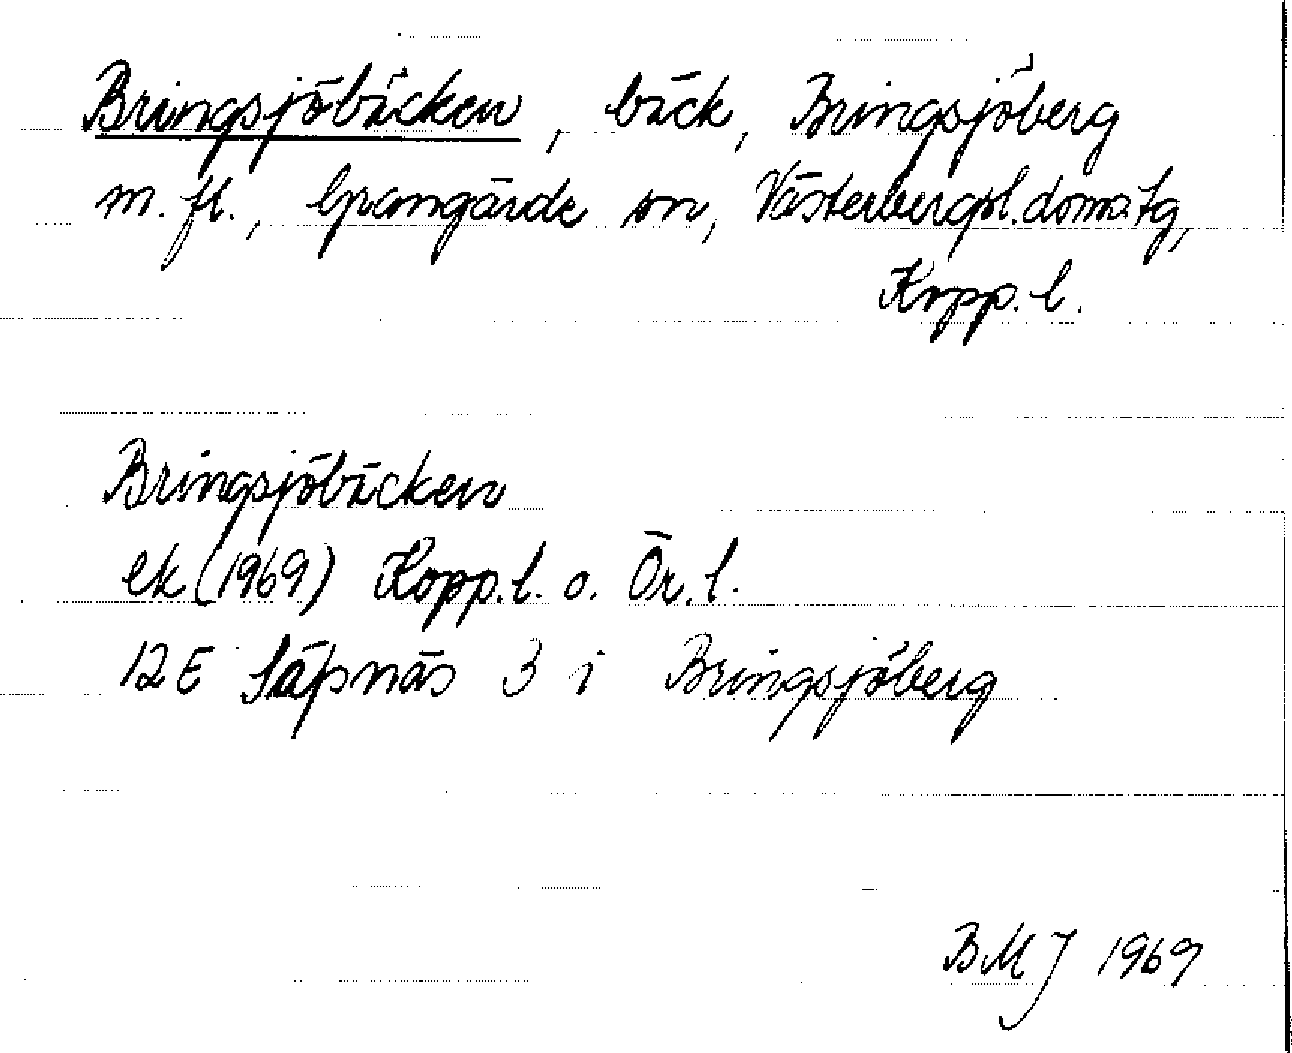 Bringsjöbäcken, bäck, Bringsjöberg
m.fl., Grangärde sn, Västerbergsl. doms.tg,
Kopp. l.
Bringsjöbäcken
ek (1969) Kopp.l. o. Ör.l.
12E Säfsnäs 3 i Bringsjöberg
BMJ 1969